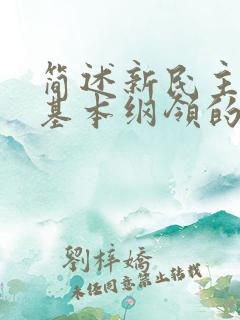 简述新民主
基本纲领的
劉梓嬌
未经同意禁止转载